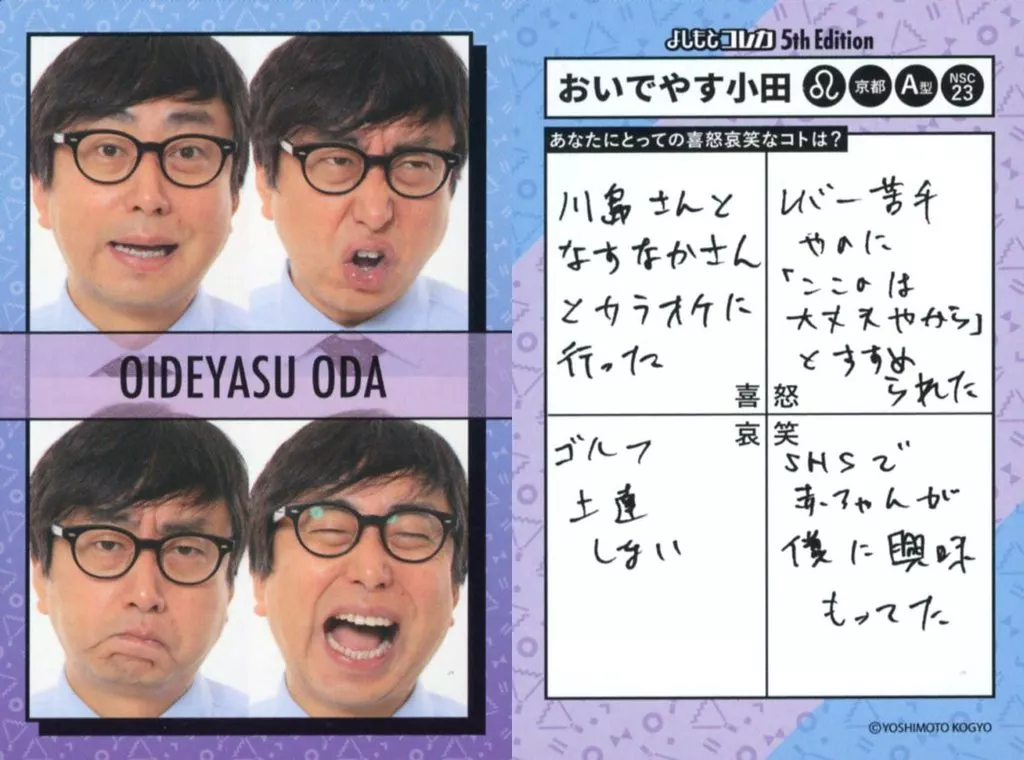 OIDEYASU ODA
よしもとコレカ 5th Edition
おいでやす小田 ♌ 京都 A型 NSC 23
あなたにとっての喜怒哀笑なコトは？
川島さんと
なすなかさん
とカラオケに
行った
喜
レバー苦手
やのに
「ここのは
大丈夫やから」
とすすめ
られた
怒
哀
ゴルフ
上達
しない
笑
SNSで
赤ちゃんが
僕に興味
もってた
©YOSHIMOTO KOGYO